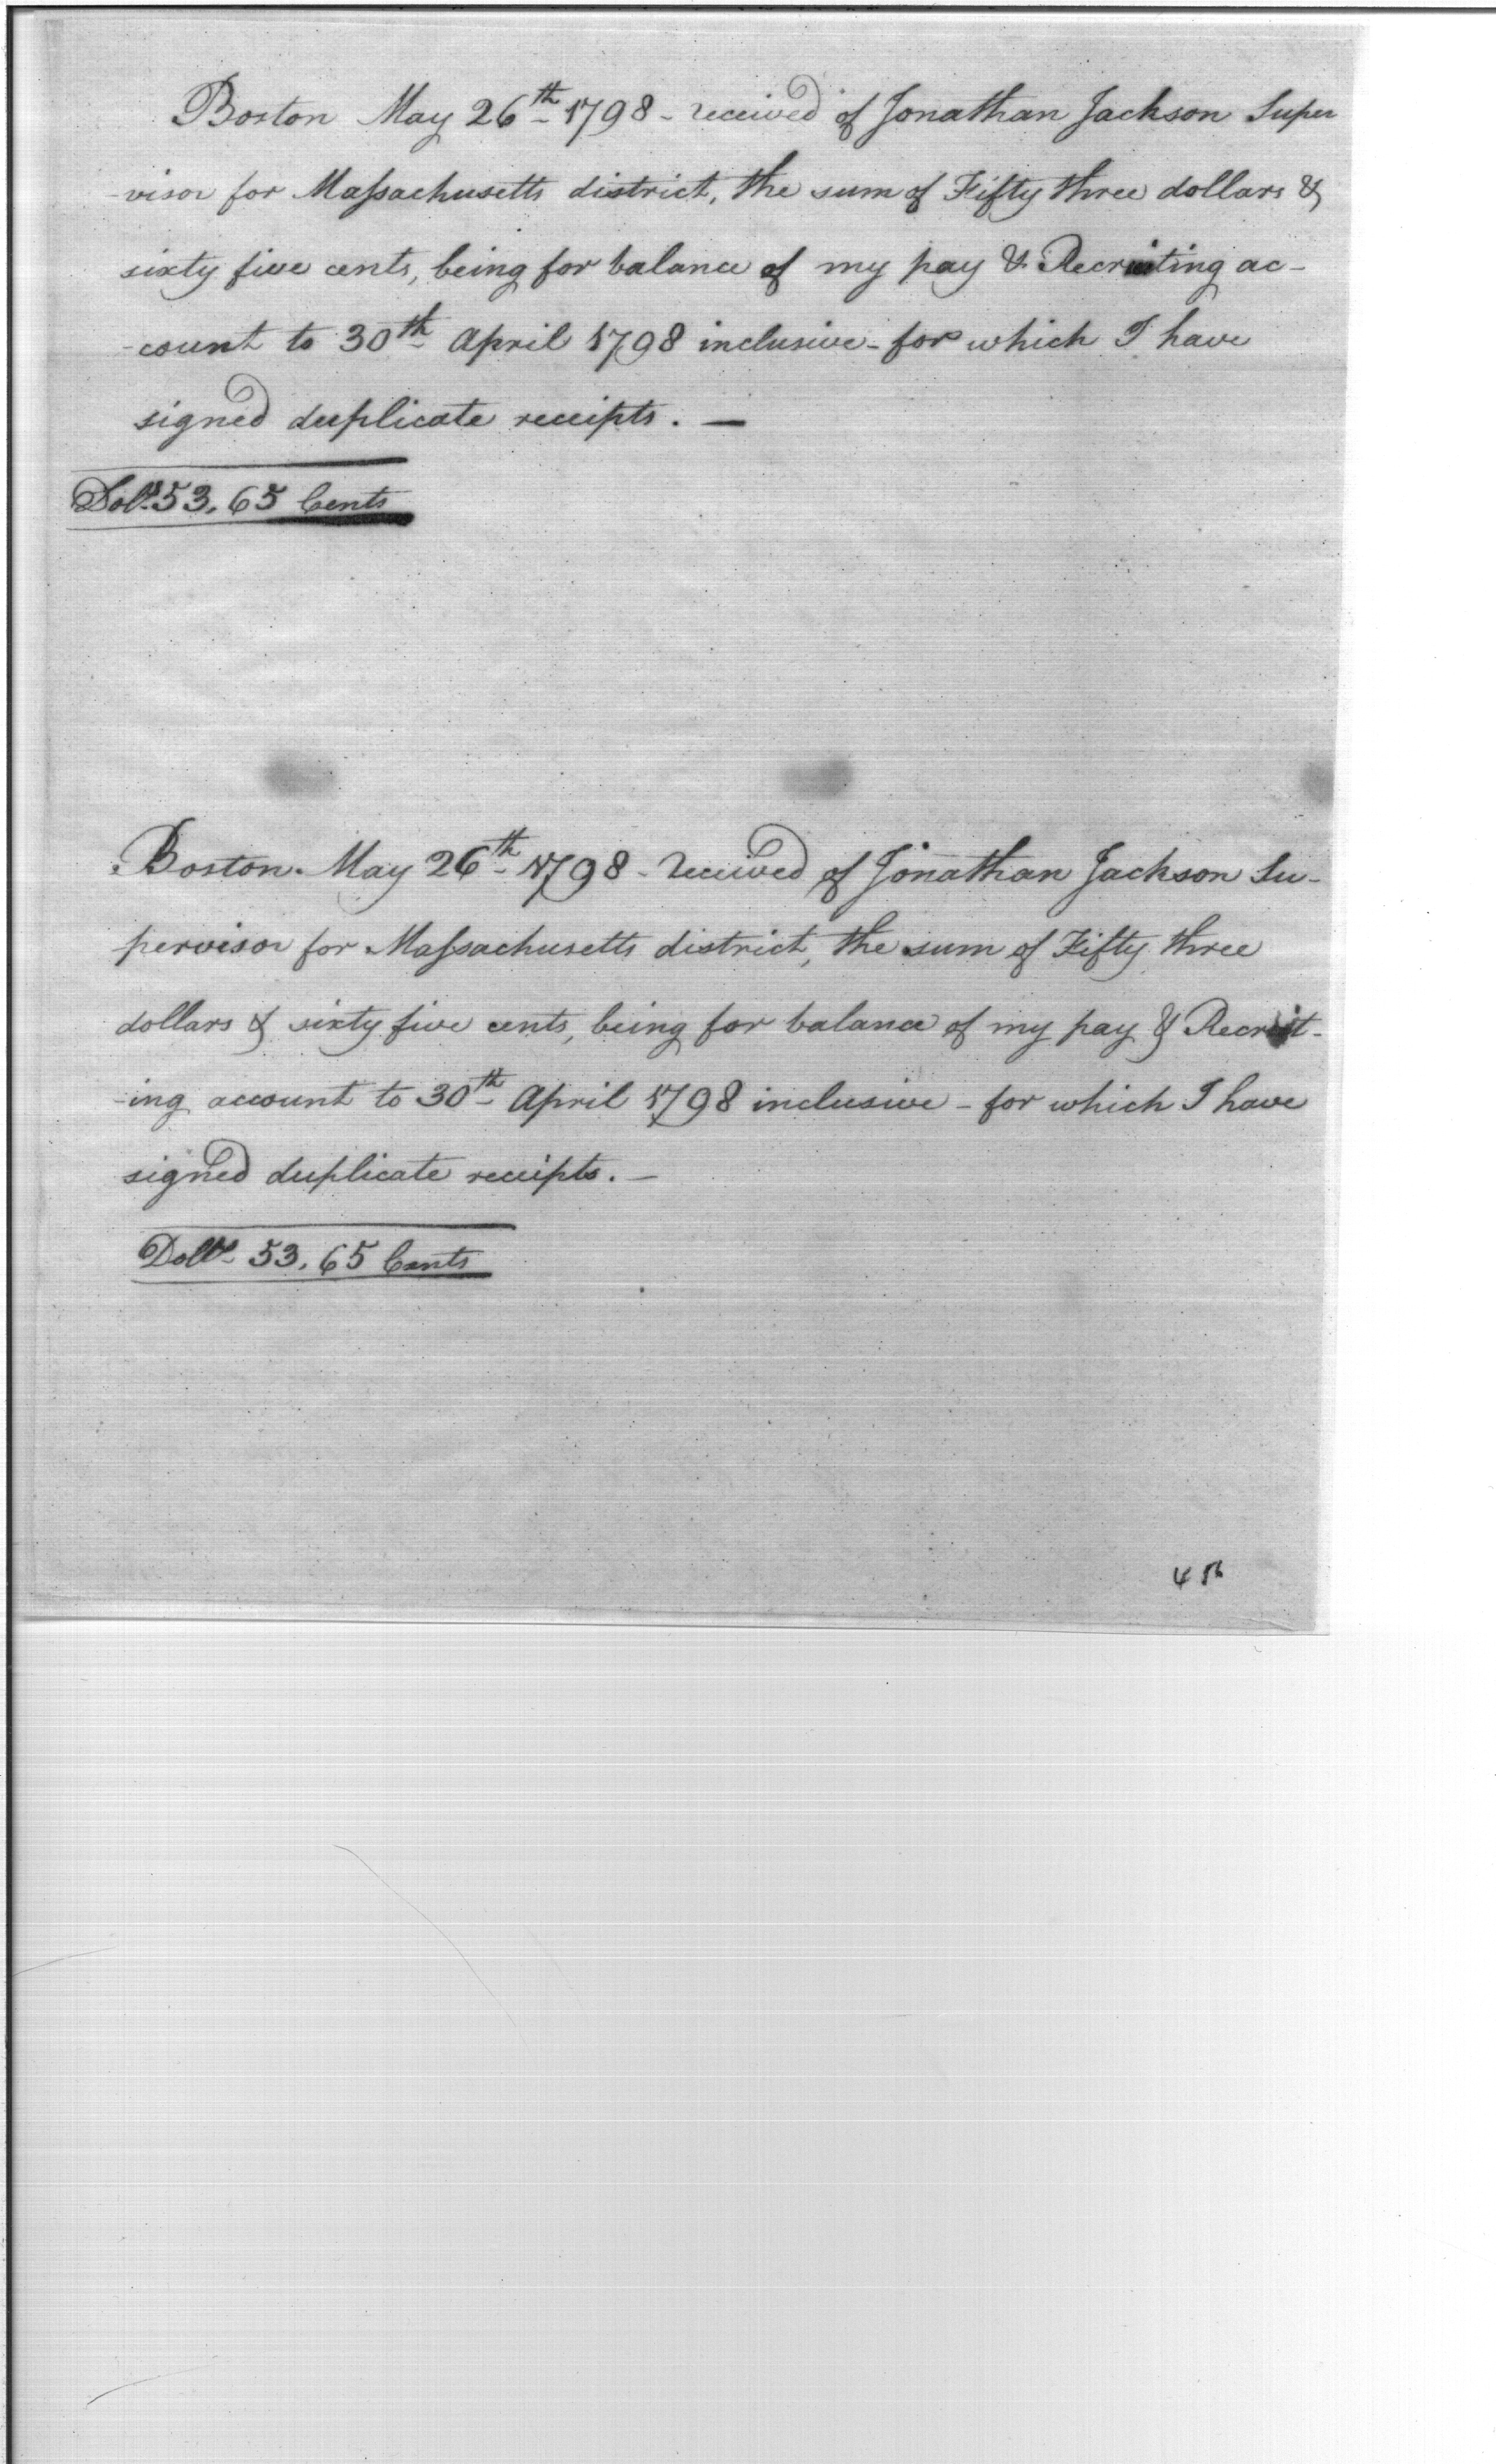 Boston May 26th 1798 - received of Jonathan Jackson Super
-visor for Massachusetts district, the sum of Fifty three dollars &
sixty five cents, being for balance of my pay & Recruiting ac-
-count to 30th April 1798 inclusive - for which I have
signed duplicate receipts. —
Dolls 53.65 Cents
Boston. May 26th 1798 - received of Jonathan Jackson Su-
pervisor for Massachusetts district, the sum of Fifty three
dollars & sixty five cents, being for balance of my pay & Recruit-
-ing account to 30th April 1798 inclusive - for which I have
signed duplicate receipts. —
Dolls 53.65 Cents